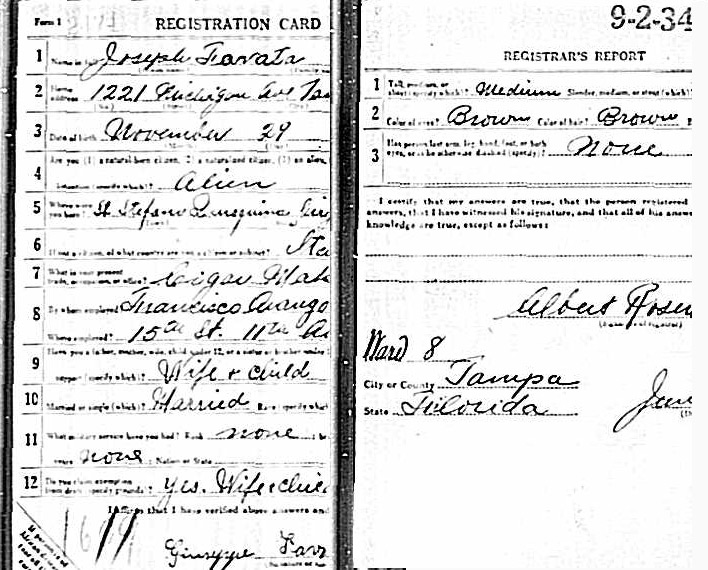 Form 1 REGISTRATION CARD
1 Name in full Joseph Favata
2 Home address 1221 Michigan Ave
3 Date of birth November 29
Are you (1) a natural-born citizen, (2) a naturalized citizen, (3) an alien,
4 intention (specify which)? Alien
5 Where were you born? St Stefano Quisquina
6 If not a citizen, of what country are you a citizen or subject?
7 What is your present trade, occupation, or office? Cigar
8 By whom employed? Francisco Arango
Where employed? 15th St. 11th
9 Have you a father, mother, wife, child under 12, or a sister or brother under
support (specify which)? Wife & child
10 Married or single (which)? Married Race (specify which
11 What military service have you had? Rank none
years none Nation or State
12 Do you claim exemption from draft (specify grounds)? Yes. Wife &
I affirm that I have verified above answers and
Giuseppe
9-2-34
REGISTRAR'S REPORT
1 Tall, medium, or short (specify which)? Medium Slender, medium, or stout (which)?
2 Color of eyes? Brown Color of hair? Brown
3 Has person lost arm, leg, hand, foot, or both eyes, or is he otherwise disabled (specify)? None
I certify that my answers are true, that the person registered
answers, that I have witnessed his signature, and that all of his
knowledge are true, except as follows:
Albert
(Signature of registrar)
Ward 8
City or County Tampa
State Filorida